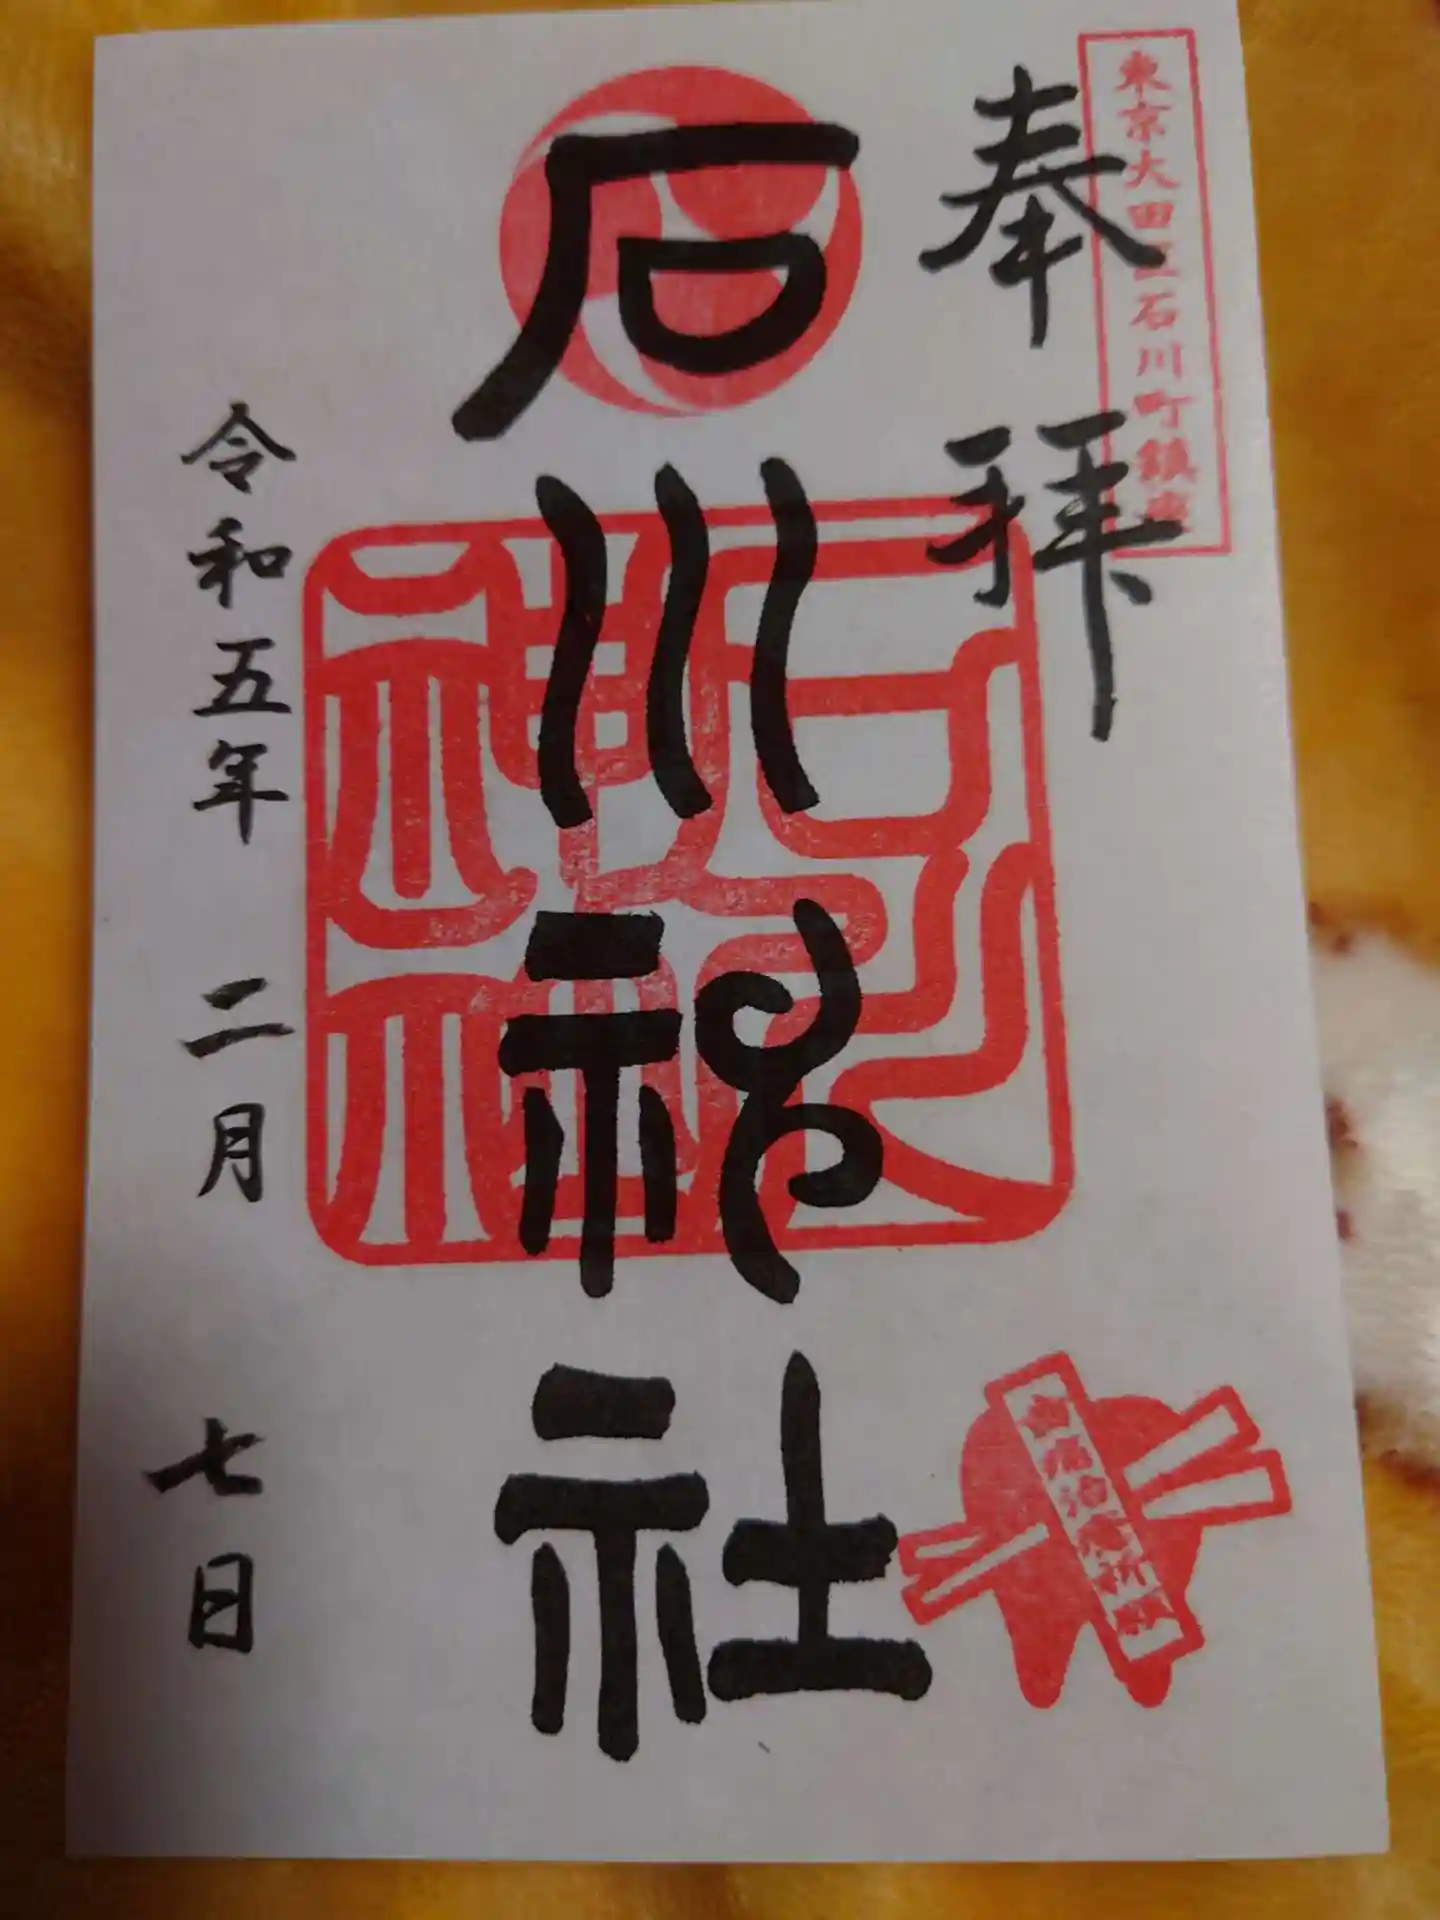 東京大田区石川町鎮座
奉拝
石川神社
石川神社
令和五年 二月 七日